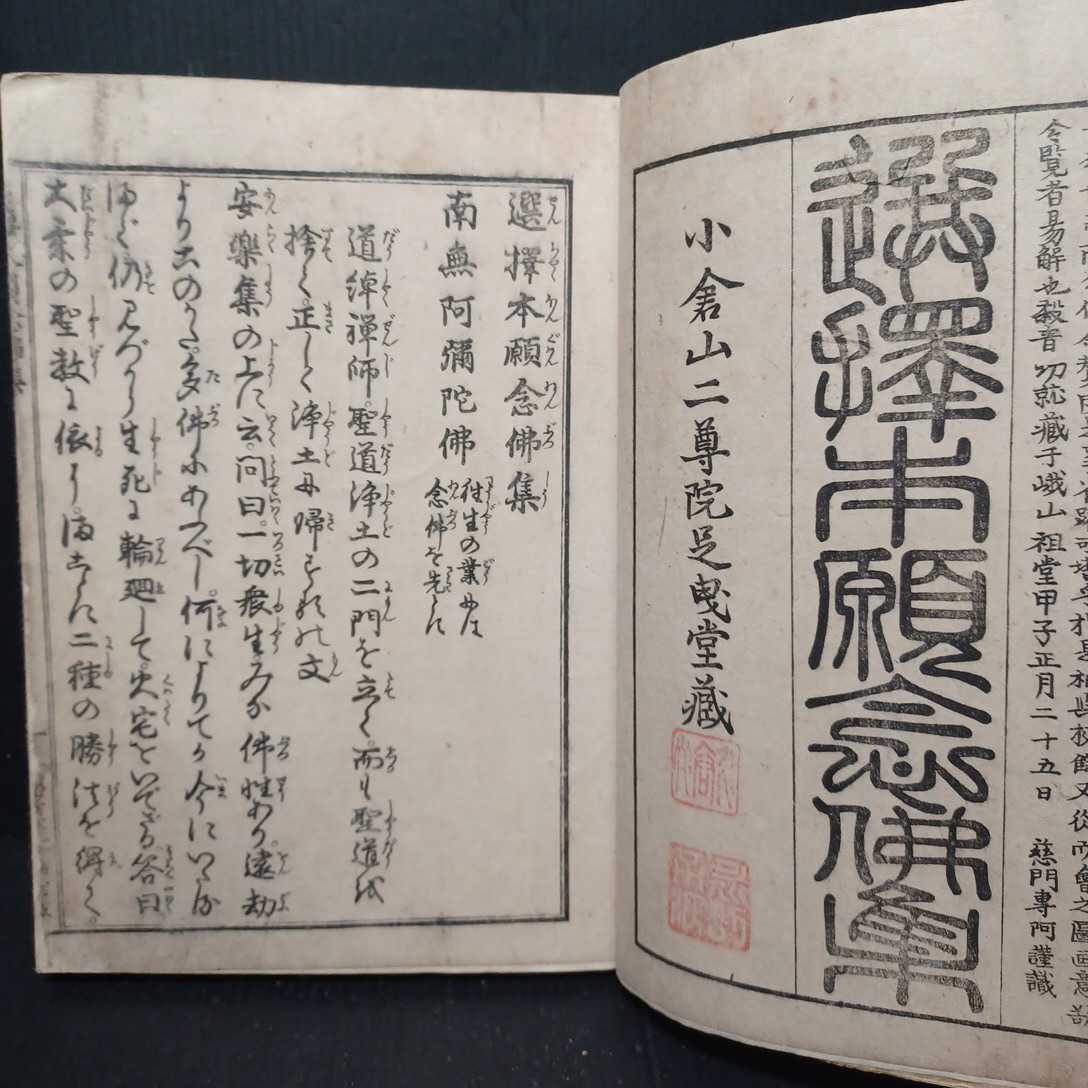 令覧者易解也毅音刀就藏于峨山祖堂甲子正月二十五日　慈門專阿謹識
選擇本願念佛集
小倉山二尊院足曳堂藏
選擇本願念佛集
南無阿彌陀佛 往生の業には 念佛を先とす
道綽禪師。聖道浄土の二門を立て。而も聖道を
捨て。正しく浄土に歸するの文
安樂集の上に云。問曰。一切衆生みな佛性あり。遠劫
よりこのかた。多佛にあふべし。何によりてか今にいたるまで
仍みづから生死に輪廻して。火宅をいでざる。答曰
大乘の聖教に依に。まことに二種の勝法を得て。